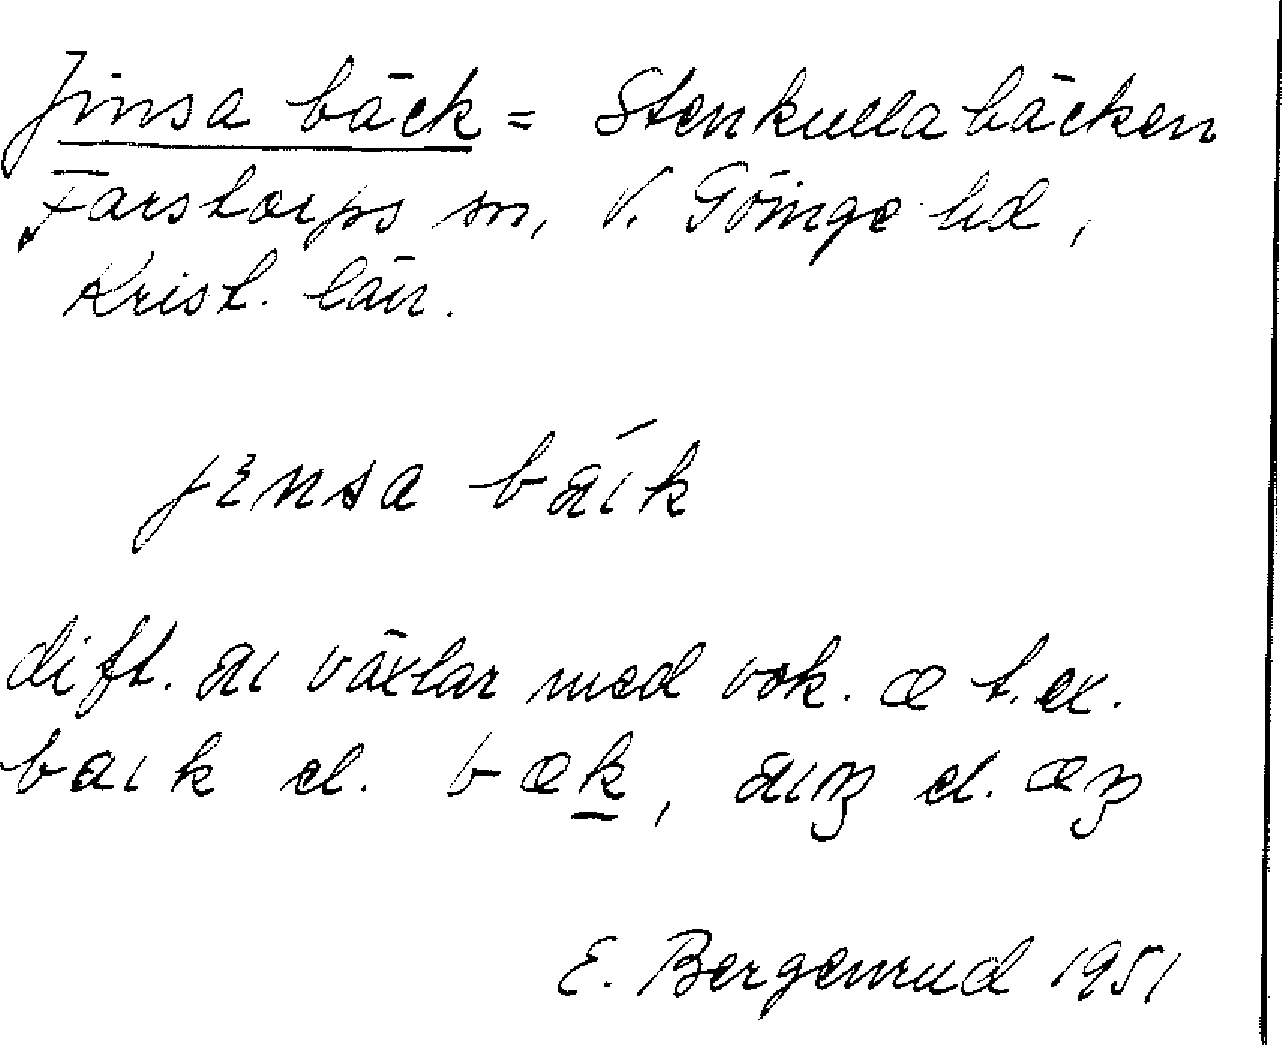 Jinsa bäck = Stenkullabäcken
Farstorps sn, V. Göinge hd,
Krist. län.
jɛnsa bæık
dift. æı växlar med vok. æ t.ex.
baık el. bæk, æıŋ el. æŋ
E. Bergenrud 1951